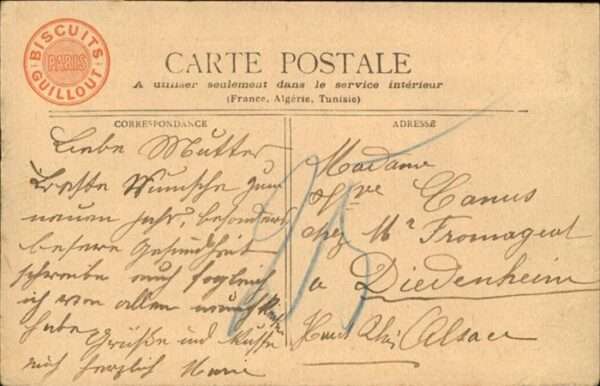 BISCUITS
PARIS
GUILLOUT
CARTE POSTALE
A utiliser seulement dans le service intérieur
(France, Algérie, Tunisie)
CORRESPONDANCE
Liebe Mutter,
Beste Wünsche zum
neuen Jahr, besonders
bessere Gesundheit
schreibe auch sogleich
ich von allen
habe Grüße und Küsse
herzlich Marie
ADRESSE
Madame
Vve Camus
chez Mr Fromageat
a Diedenheim
Haut Rhin Alsace
25